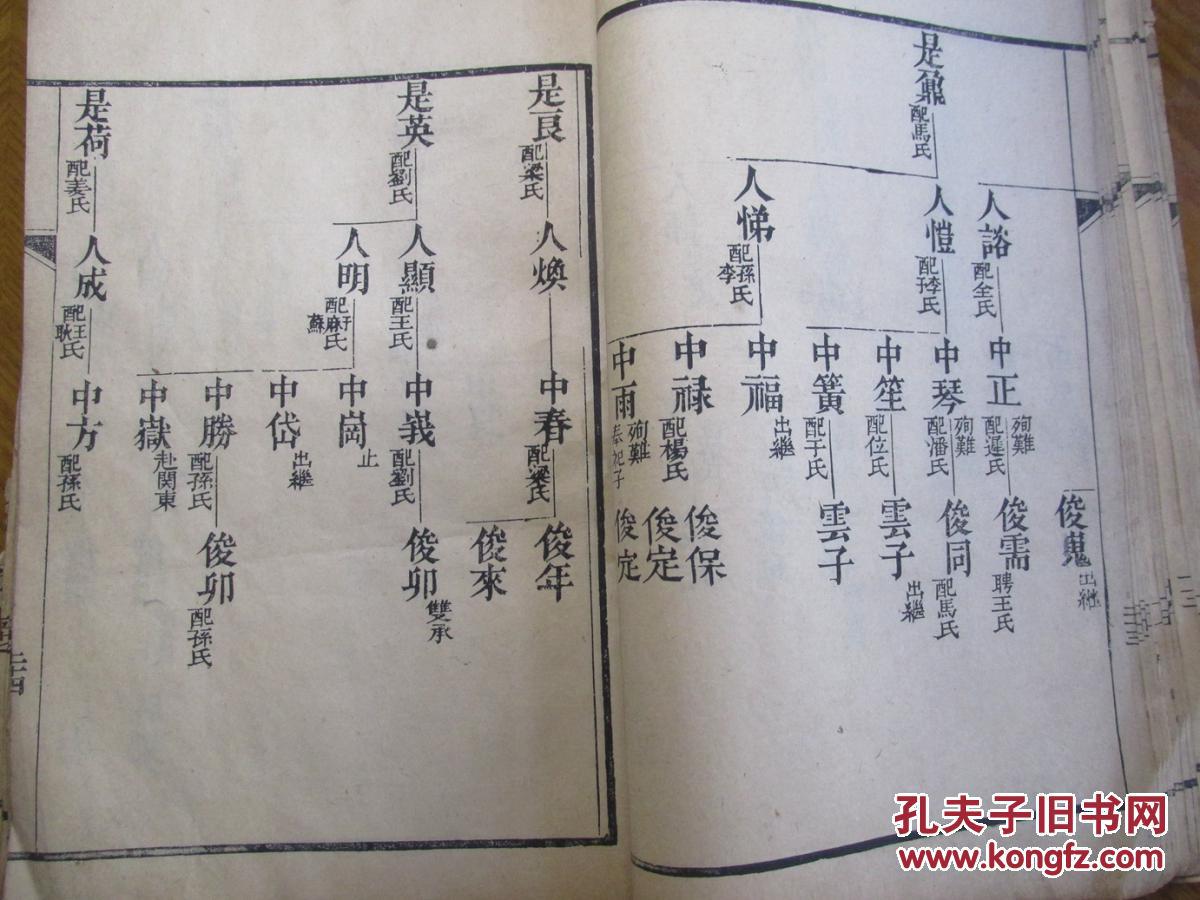 俊蒐
出繼
是鼐
配馬氏
人諮
配仝氏
中正
殉難
配遲氏
俊需
聘王氏
人愷
配李氏
中琴
殉難
配潘氏
俊同
配馬氏
中笙
配位氏
雲子
出繼
中簧
配于氏
雲子
人悌
配孫李氏
中福
出繼
中祿
配楊氏
俊保
俊定
中雨
殉難
奉祀子
俊定
是良
配梁氏
人煥
中春
配梁氏
俊年
俊來
是英
配劉氏
人顯
配王氏
中峩
配劉氏
俊卯
雙承
人明
配于麻蘇氏
中崗
止
中岱
出繼
中勝
配孫氏
俊卯
配孫氏
中嶽
赴関東
是荷
配姜氏
人成
配王耿氏
中方
配孫氏
二十四
孔夫子旧书网
www.kongfz.com